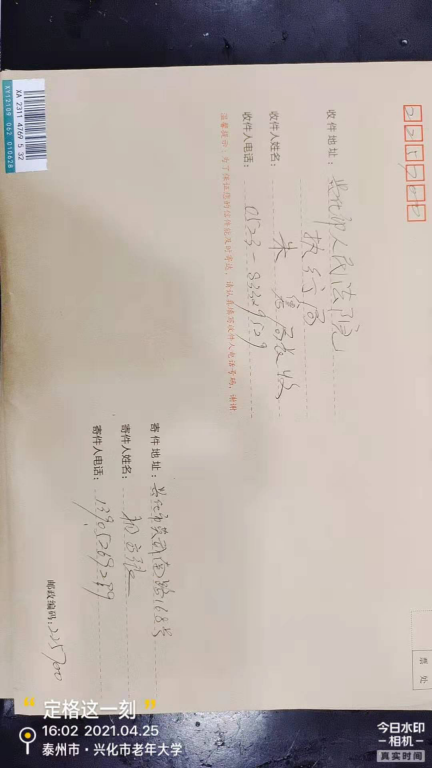 225700
收件地址：兴化市人民法院
执行局
收件人姓名：朱 局长收
收件人电话：0523-83249529
温馨提示：为了保证您的信件能及时寄达，请认真填写收件人电话号码，谢谢
寄件地址：兴化市英武南路168号
寄件人姓名：
寄件人电话：13905269289
邮政编码：225700
票处
XA 2311 4769 5 32
XY12109 062 010628
"定格这一刻"
16:02 2021.04.25
泰州市·兴化市老年大学
今日水印
-相机-
真实时间